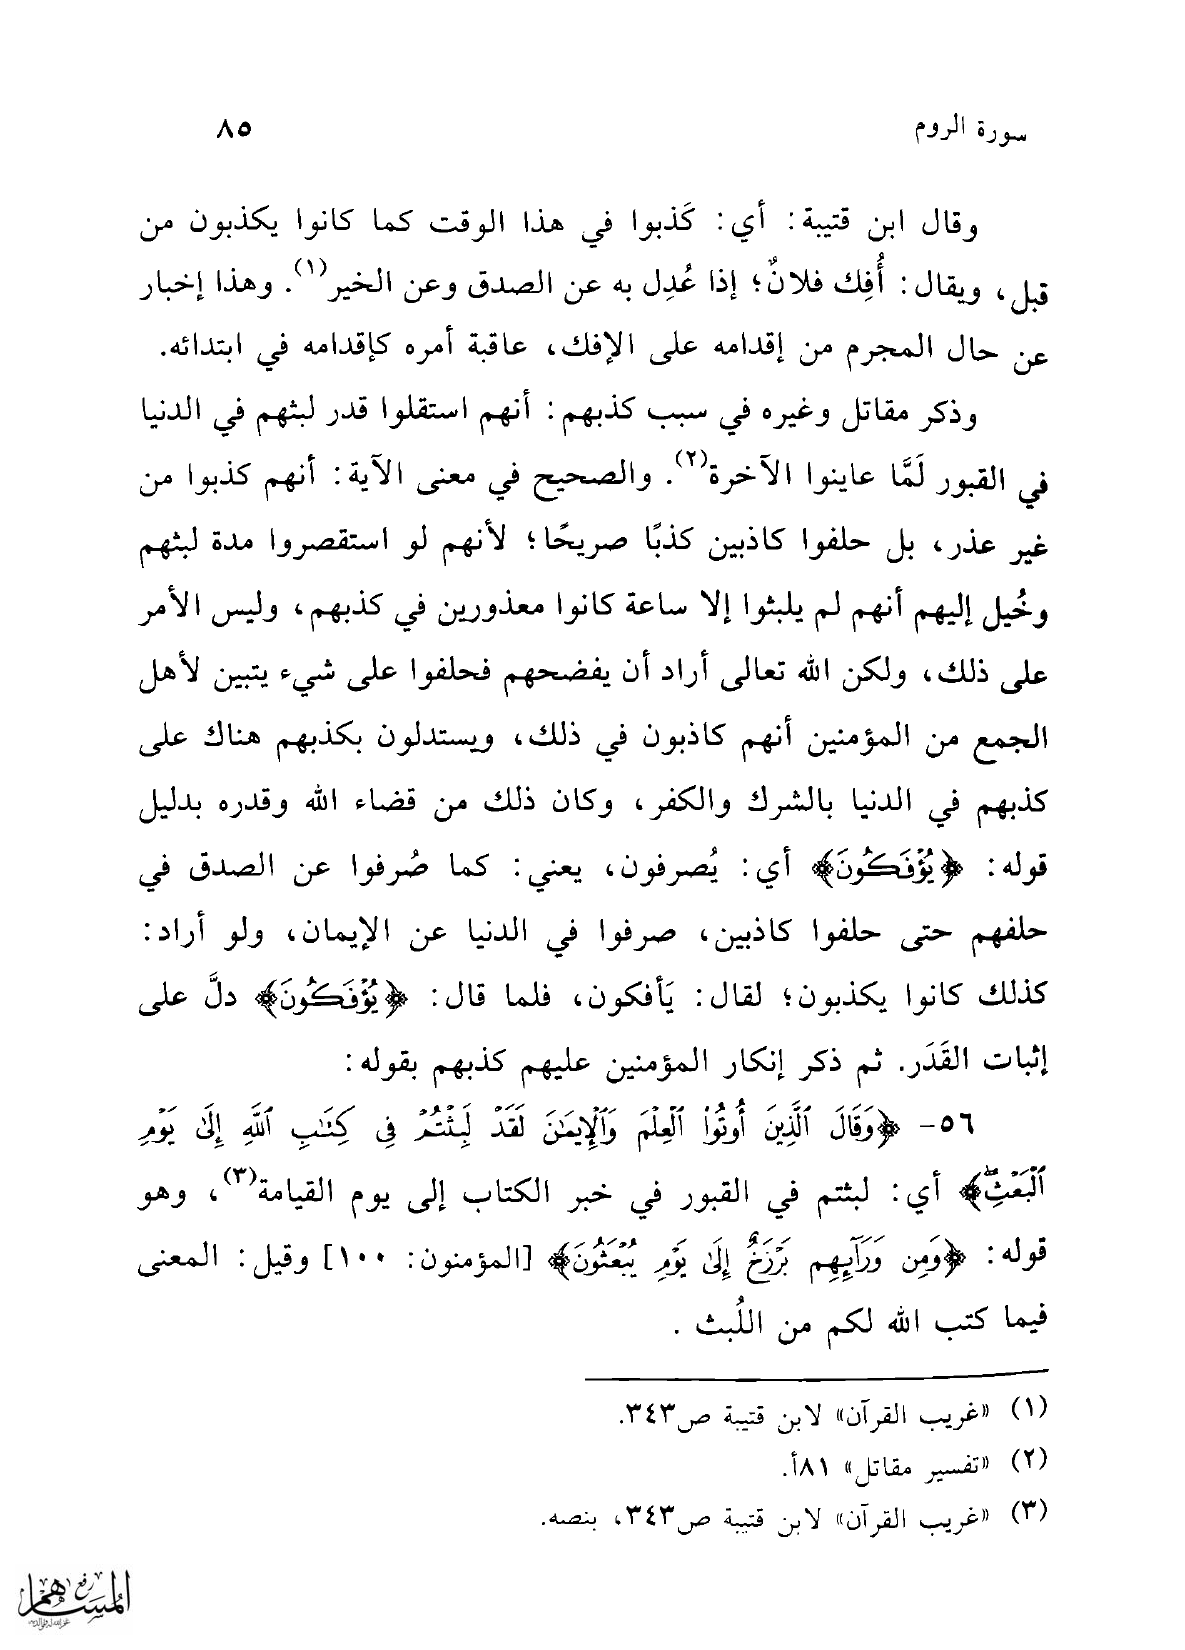 سورة الروم ٨٥
وقال ابن قتيبة: أي: كَذبوا في هذا الوقت كما كانوا يكذبون من
قبل، ويقال: أُفِك فلانٌ؛ إذا عُدِل به عن الصدق وعن الخير(١). وهذا إخبار
عن حال المجرم من إقدامه على الإفك، عاقبة أمره كإقدامه في ابتدائه.
وذكر مقاتل وغيره في سبب كذبهم: أنهم استقلوا قدر لبثهم في الدنيا
في القبور لَمَّا عاينوا الآخرة(٢). والصحيح في معنى الآية: أنهم كذبوا من
غير عذر، بل حلفوا كاذبين كذبًا صريحًا؛ لأنهم لو استقصروا مدة لبثهم
وخُيل إليهم أنهم لم يلبثوا إلا ساعة كانوا معذورين في كذبهم، وليس الأمر
على ذلك، ولكن الله تعالى أراد أن يفضحهم فحلفوا على شيء يتبين لأهل
الجمع من المؤمنين أنهم كاذبون في ذلك، ويستدلون بكذبهم هناك على
كذبهم في الدنيا بالشرك والكفر، وكان ذلك من قضاء الله وقدره بدليل
قوله: ﴿يُؤْفَكُونَ﴾ أي: يُصرفون، يعني: كما صُرفوا عن الصدق في
حلفهم حتى حلفوا كاذبين، صرفوا في الدنيا عن الإيمان، ولو أراد:
كذلك كانوا يكذبون؛ لقال: يَأفكون، فلما قال: ﴿يُؤْفَكُونَ﴾ دلَّ على
إثبات القَدَر. ثم ذكر إنكار المؤمنين عليهم كذبهم بقوله:
٥٦- ﴿وَقَالَ ٱلَّذِينَ أُوتُوا۟ ٱلْعِلْمَ وَٱلْإِيمَٰنَ لَقَدْ لَبِثْتُمْ فِى كِتَٰبِ ٱللَّهِ إِلَىٰ يَوْمِ
ٱلْبَعْثِۖ﴾ أي: لبثتم في القبور في خبر الكتاب إلى يوم القيامة(٣)، وهو
قوله: ﴿وَمِن وَرَآئِهِم بَرْزَخٌ إِلَىٰ يَوْمِ يُبْعَثُونَ﴾ [المؤمنون: ١٠٠] وقيل: المعنى
فيما كتب الله لكم من اللُبث .
(١) «غريب القرآن» لابن قتيبة ص٣٤٣.
(٢) «تفسير مقاتل» ٨١أ.
(٣) «غريب القرآن» لابن قتيبة ص٣٤٣، بنصه.